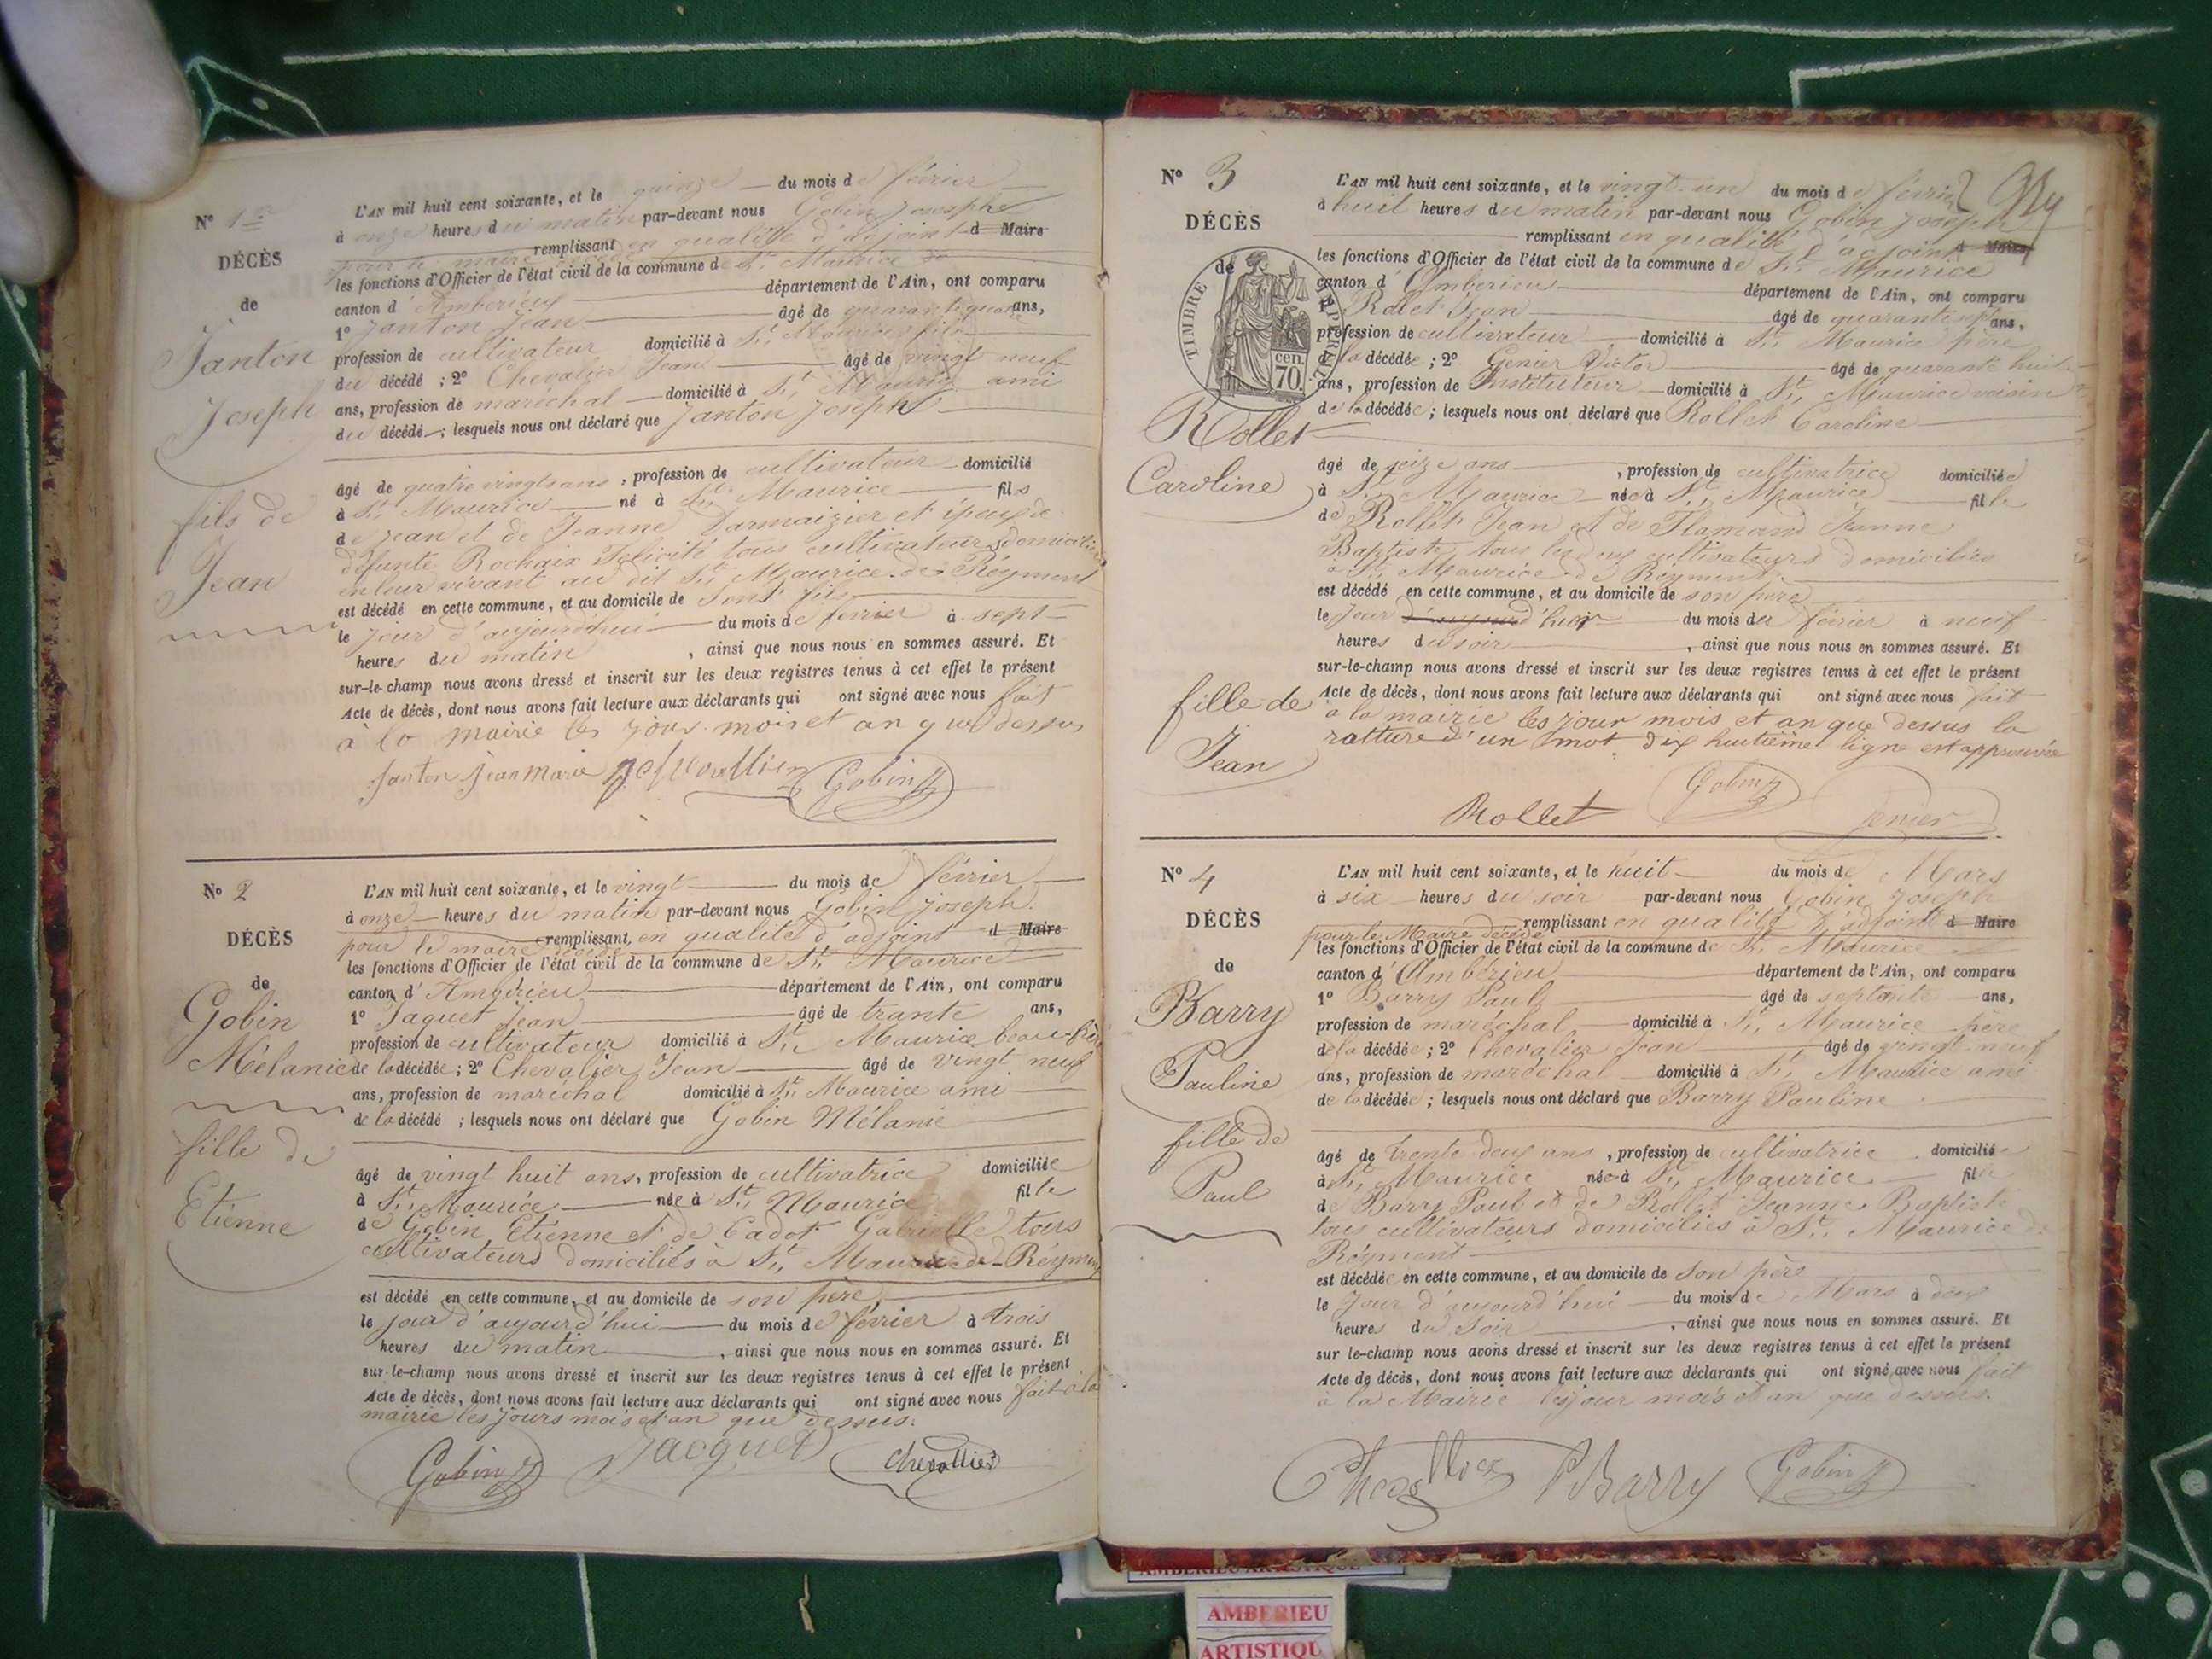 N° 1er
DÉCÈS
de
Janton
Joseph
fils de
Jean
L'AN mil huit cent soixante, et le quinze du mois de février
à onze heures du matin par-devant nous Gobin Joseph
pour le maire remplissant en qualité d'adjoint d Maire
les fonctions d'Officier de l'état civil de la commune de St. Maurice
canton d'Ambérieu département de l'Ain, ont comparu
1° Janton Jean âgé de quarante quatre ans,
profession de cultivateur domicilié à St. Maurice fils
du décédé ; 2° Chevalier Jean âgé de vingt neuf
ans, profession de maréchal domicilié à St. Maurice ami
du décédé ; lesquels nous ont déclaré que Janton Joseph
âgé de quatre vingts ans, profession de cultivateur domicilié
à St. Maurice né à St. Maurice fils
de Jean et de Jeanne Darmaizier et époux de
défunte Rochaix Félicité tous cultivateurs domiciliés
en leur vivant au dit St. Maurice-de-Réyment
est décédé en cette commune, et au domicile de son fils
le jour d'aujourd'hui du mois de février à sept
heures du matin, ainsi que nous nous en sommes assuré. Et
sur-le-champ nous avons dressé et inscrit sur les deux registres tenus à cet effet le présent
Acte de décès, dont nous avons fait lecture aux déclarants qui ont signé avec nous fait
à la mairie les jours mois et an que dessus
Janton jean marie Chevallier Gobin J
N° 2
DÉCÈS
de
Gobin
Mélanie
fille de
Etienne
L'AN mil huit cent soixante, et le vingt du mois de février
à onze heures du matin par-devant nous Gobin Joseph
pour le maire décédé remplissant en qualité d'adjoint d Maire
les fonctions d'Officier de l'état civil de la commune de St. Maurice
canton d'Ambérieu département de l'Ain, ont comparu
1° Jaquet Jean âgé de trante ans,
profession de cultivateur domicilié à St. Maurice beau-frère
de la décédée ; 2° Chevalier Jean âgé de vingt neuf
ans, profession de maréchal domicilié à St. Maurice ami
de la décédé ; lesquels nous ont déclaré que Gobin Mélanie
âgé de vingt huit ans, profession de cultivatrice domiciliée
à St. Maurice née à St. Maurice fille
de Gobin Etienne et de Cadot Gabrielle tous
cultivateurs domiciliés à St. Maurice-de-Réyment
est décédé en cette commune, et au domicile de son père
le jour d'aujourd'hui du mois de février à trois
heures du matin, ainsi que nous nous en sommes assuré. Et
sur-le-champ nous avons dressé et inscrit sur les deux registres tenus à cet effet le présent
Acte de décès, dont nous avons fait lecture aux déclarants qui ont signé avec nous fait à la
mairie les jours mois et an que dessus.
Gobin J Jacquet Chevallier
N° 3
DÉCÈS
de
TIMBRE IMPERIAL
cen. 70.
Rollet
Caroline
fille de
Jean
L'AN mil huit cent soixante, et le vingt-un du mois de février
à huit heures du matin par-devant nous Gobin Joseph
remplissant en qualité d'adjoint d Maire
les fonctions d'Officier de l'état civil de la commune de St. Maurice
canton d'Ambérieu département de l'Ain, ont comparu
1° Rolet Jean âgé de quarante sept ans,
profession de cultivateur domicilié à St. Maurice père
de la décédée ; 2° Genier Victor âgé de quarante huit
ans, profession de Instituteur domicilié à St. Maurice voisin
de la décédée ; lesquels nous ont déclaré que Rollet Caroline
âgé de seize ans, profession de cultivatrice domiciliée
à St. Maurice née à St. Maurice fille
de Rollet Jean et de Flamand Jeanne
Baptiste tous les deux cultivateurs domiciliés
à St. Maurice-de-Réyment
est décédé en cette commune, et au domicile de son père
le jour d'aujourd'hier du mois de février à neuf
heures du soir, ainsi que nous nous en sommes assuré. Et
sur-le-champ nous avons dressé et inscrit sur les deux registres tenus à cet effet le présent
Acte de décès, dont nous avons fait lecture aux déclarants qui ont signé avec nous fait
à la mairie les jour mois et an que dessus la
ratture d'un mot dix huitième ligne est approuvée
Rollet Gobin J Genier
N° 4
DÉCÈS
de
Barry
Pauline
fille de
Paul
L'AN mil huit cent soixante, et le huit du mois de Mars
à six heures du soir par-devant nous Gobin Joseph
pour le Maire décédé remplissant en qualité d'adjoint d Maire
les fonctions d'Officier de l'état civil de la commune de St. Maurice
canton d'Ambérieu département de l'Ain, ont comparu
1° Barry Paul âgé de septante ans,
profession de maréchal domicilié à St. Maurice père
de la décédée ; 2° Chevalier Jean âgé de vingt-neuf
ans, profession de maréchal domicilié à St. Maurice ami
de la décédée ; lesquels nous ont déclaré que Barry Pauline
âgé de trente deux ans, profession de cultivatrice domiciliée
à St. Maurice née à St. Maurice fille
de Barry Paul et de Rollet Jeanne Baptiste
tous cultivateurs domiciliés à St. Maurice de
Réyment
est décédée en cette commune, et au domicile de son père
le jour d'aujourd'hui du mois de Mars à deux
heures du soir, ainsi que nous nous en sommes assuré. Et
sur le-champ nous avons dressé et inscrit sur les deux registres tenus à cet effet le présent
Acte de décès, dont nous avons fait lecture aux déclarants qui ont signé avec nous fait
à la Mairie les jour mois et an que dessus.
Chevallier PBarry Gobin J
AMBERIEU ARTISTIQUE
AMBERIEU
ARTISTIQU